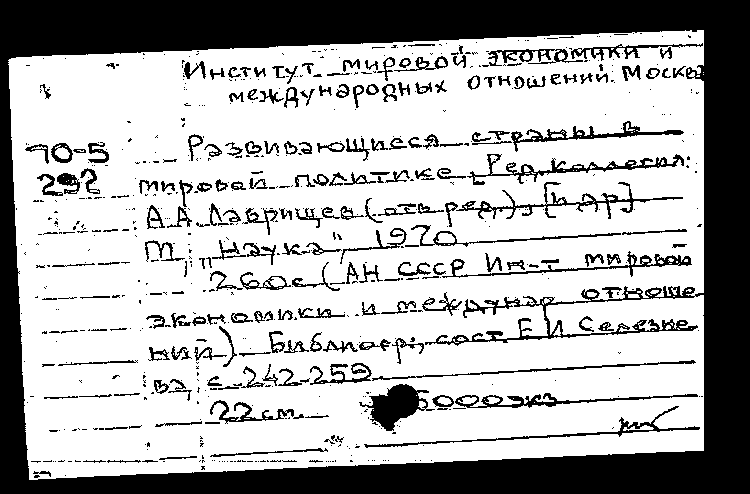 Институт мировой экономики и
международных отношений. Москва
70-5 Развивающиеся страны в
292 мировой политике [Ред. коллегия:
А.А. Лаврищев (отв ред.), [и др]
М, „Наука", 1970.
260с (АН СССР Ин-т мировой
экономики и междунар отноше
ний) Библиогр:, сост Е И Селезне
ва, с 242-259.
22 см. 5000 экз